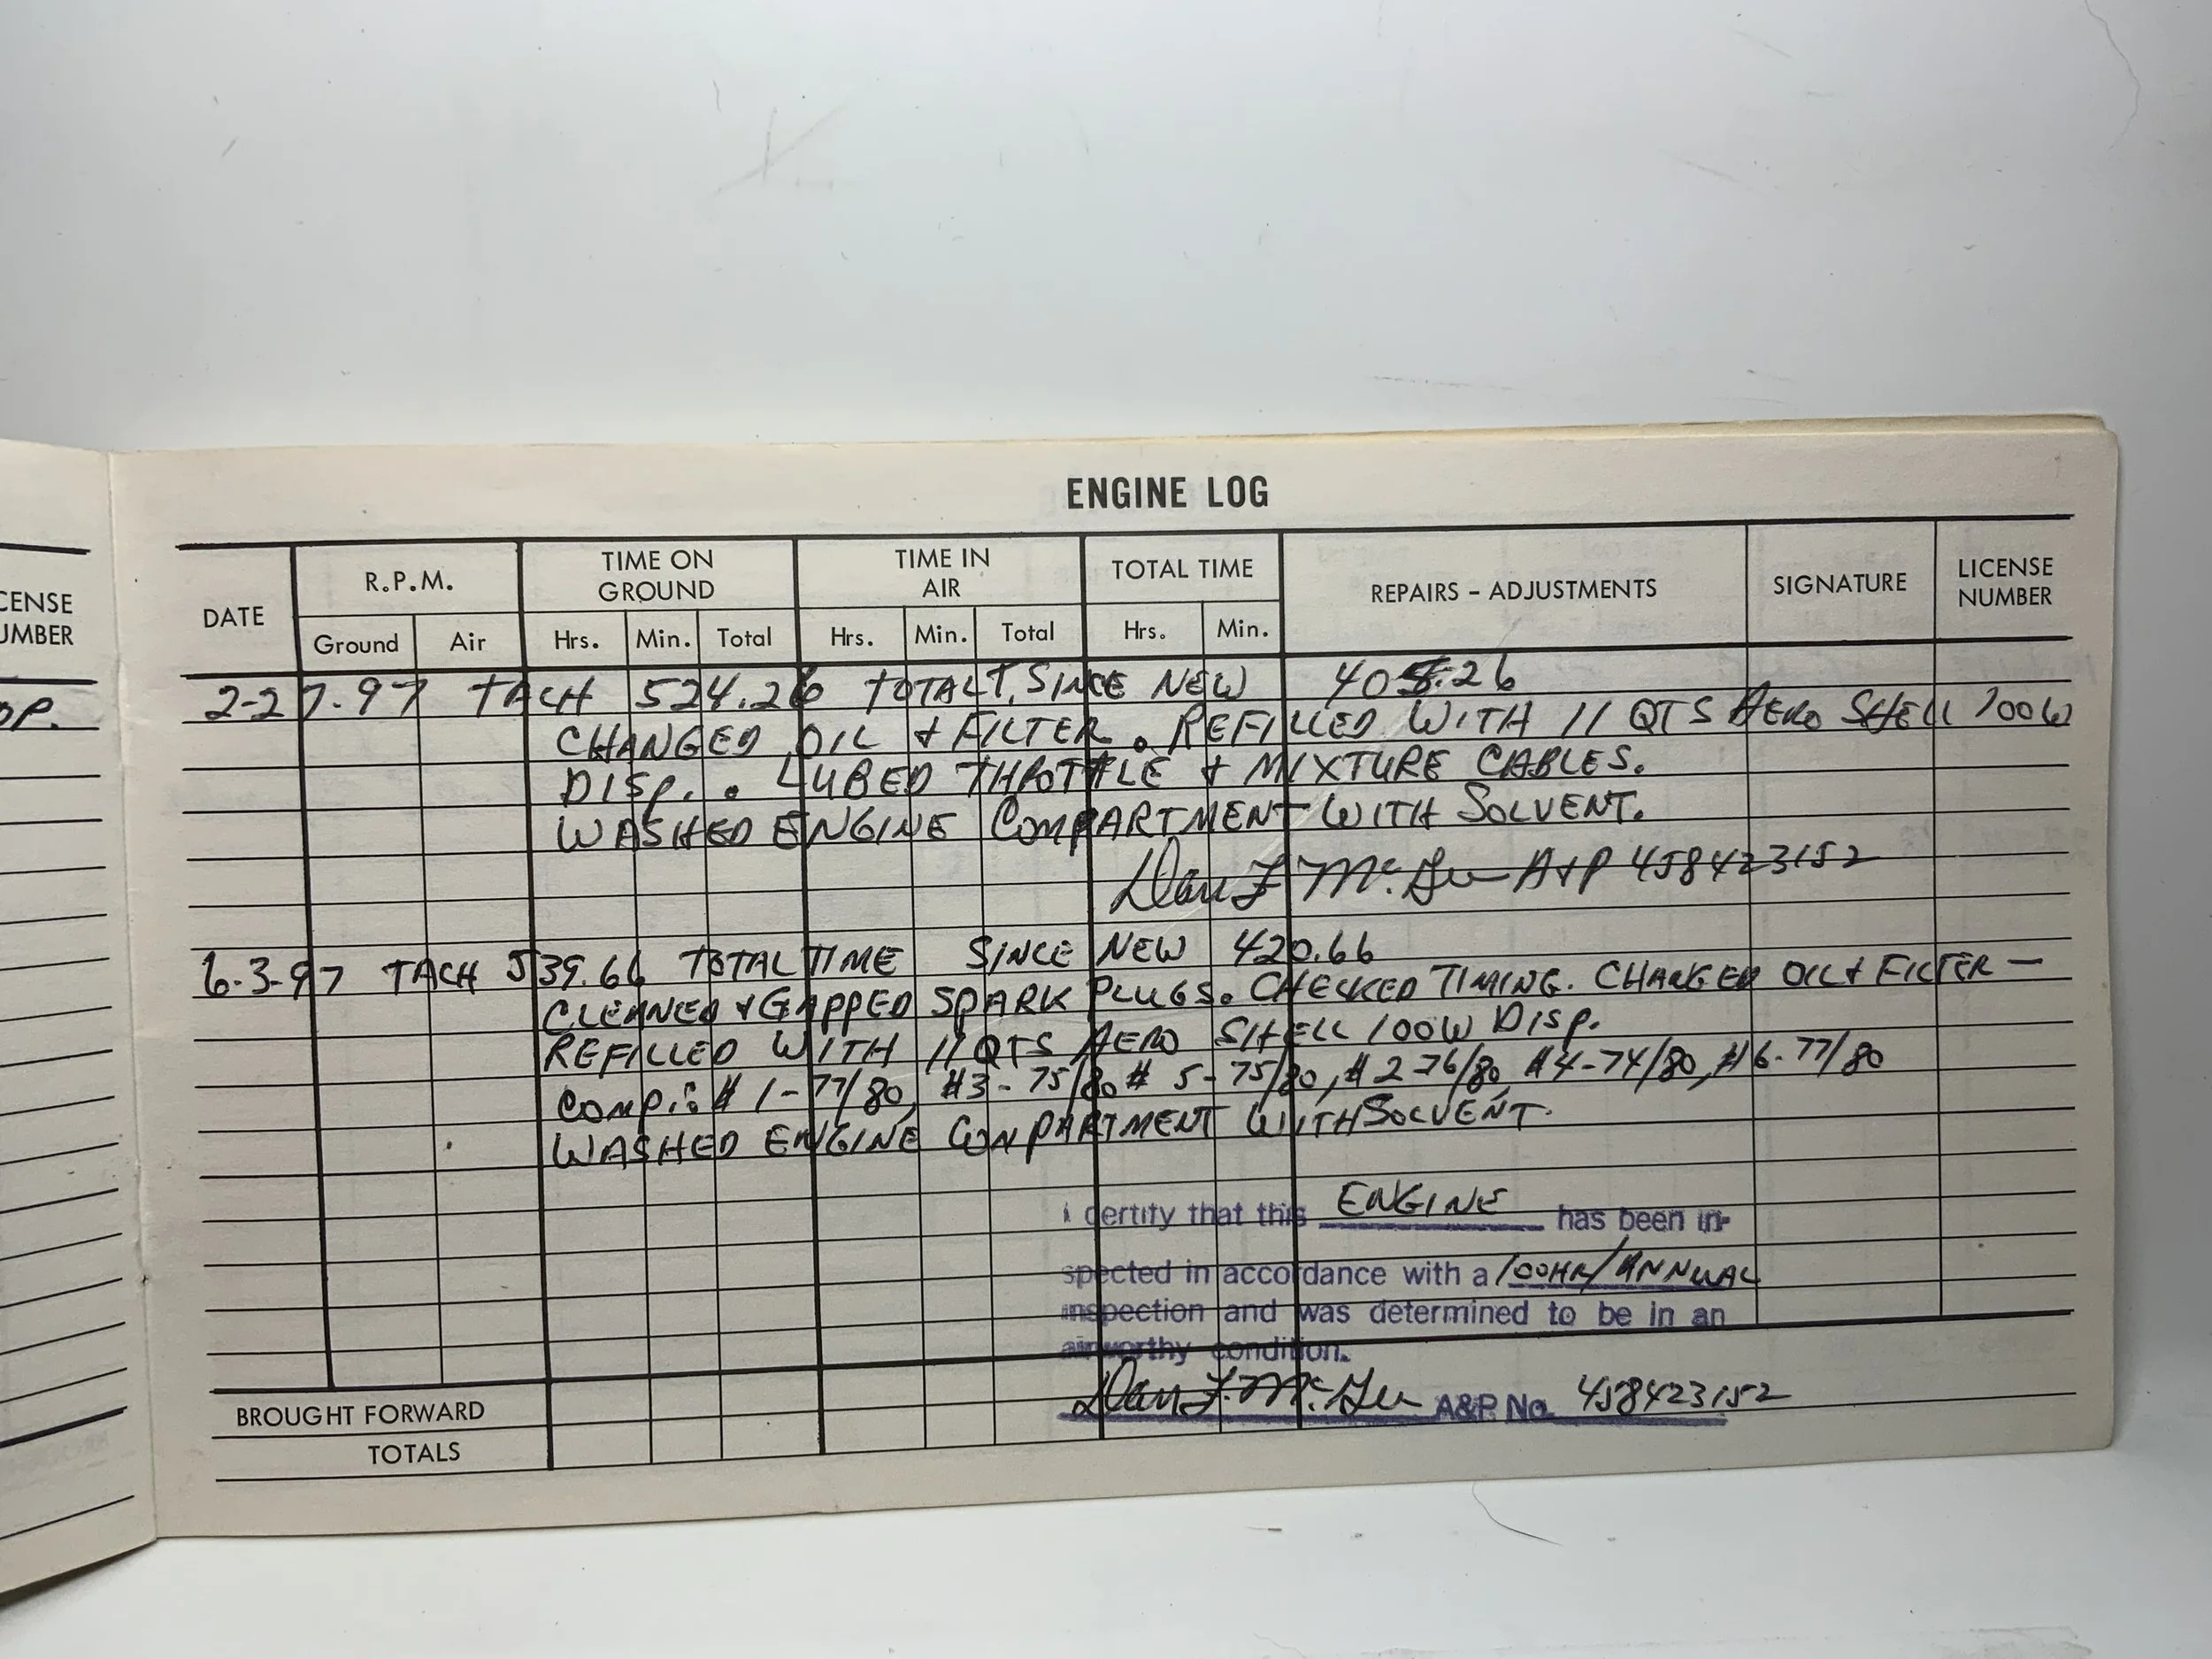 ENGINE LOG
CENSE
UMBER
OP.
DATE R.P.M. TIME ON GROUND TIME IN AIR TOTAL TIME REPAIRS – ADJUSTMENTS SIGNATURE LICENSE NUMBER
Ground Air Hrs. Min. Total Hrs. Min. Total Hrs. Min.
2-27-97 TACH 524.26 TOTAL T. SINCE NEW 405.26
CHANGED OIL & FILTER. REFILLED WITH 11 QTS AERO SHELL 100W
DISP.. LUBED THROTTLE & MIXTURE CABLES.
WASHED ENGINE COMPARTMENT WITH SOLVENT.
Dan F Mc.Gee A&P 458423152
6-3-97 TACH 539.66 TOTAL TIME SINCE NEW 420.66
CLEANED & GAPPED SPARK PLUGS. CHECKED TIMING. CHANGED OIL & FILTER —
REFILLED WITH 11 QTS AERO SHELL 100W DISP.
COMP.: # 1-77/80, #3-75/80 # 5-75/80, # 2-76/80, #4-74/80, #6-77/80
WASHED ENGINE COMPARTMENT WITH SOLVENT.
I certify that this ENGINE has been in-
spected in accordance with a 100HR/ANNUAL
inspection and was determined to be in an
airworthy condition.
Dan F. Mc.Gee A&P. No. 458423152
BROUGHT FORWARD
TOTALS